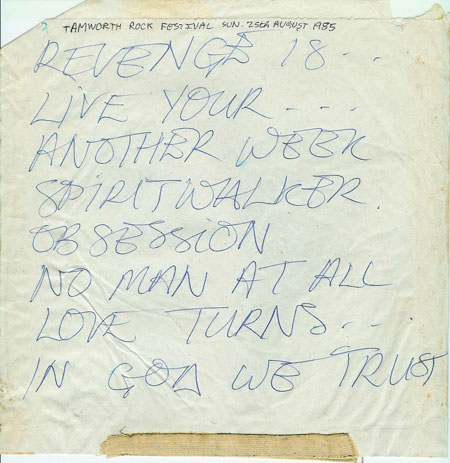 TAMWORTH ROCK FESTIVAL SUN. 25th AUGUST 1985
REVENGE IS . . .
LIVE YOUR . . .
ANOTHER WEEK
SPIRITWALKER.
OBSESSION
NO MAN AT ALL
LOVE TURNS . . .
IN GOD WE TRUST